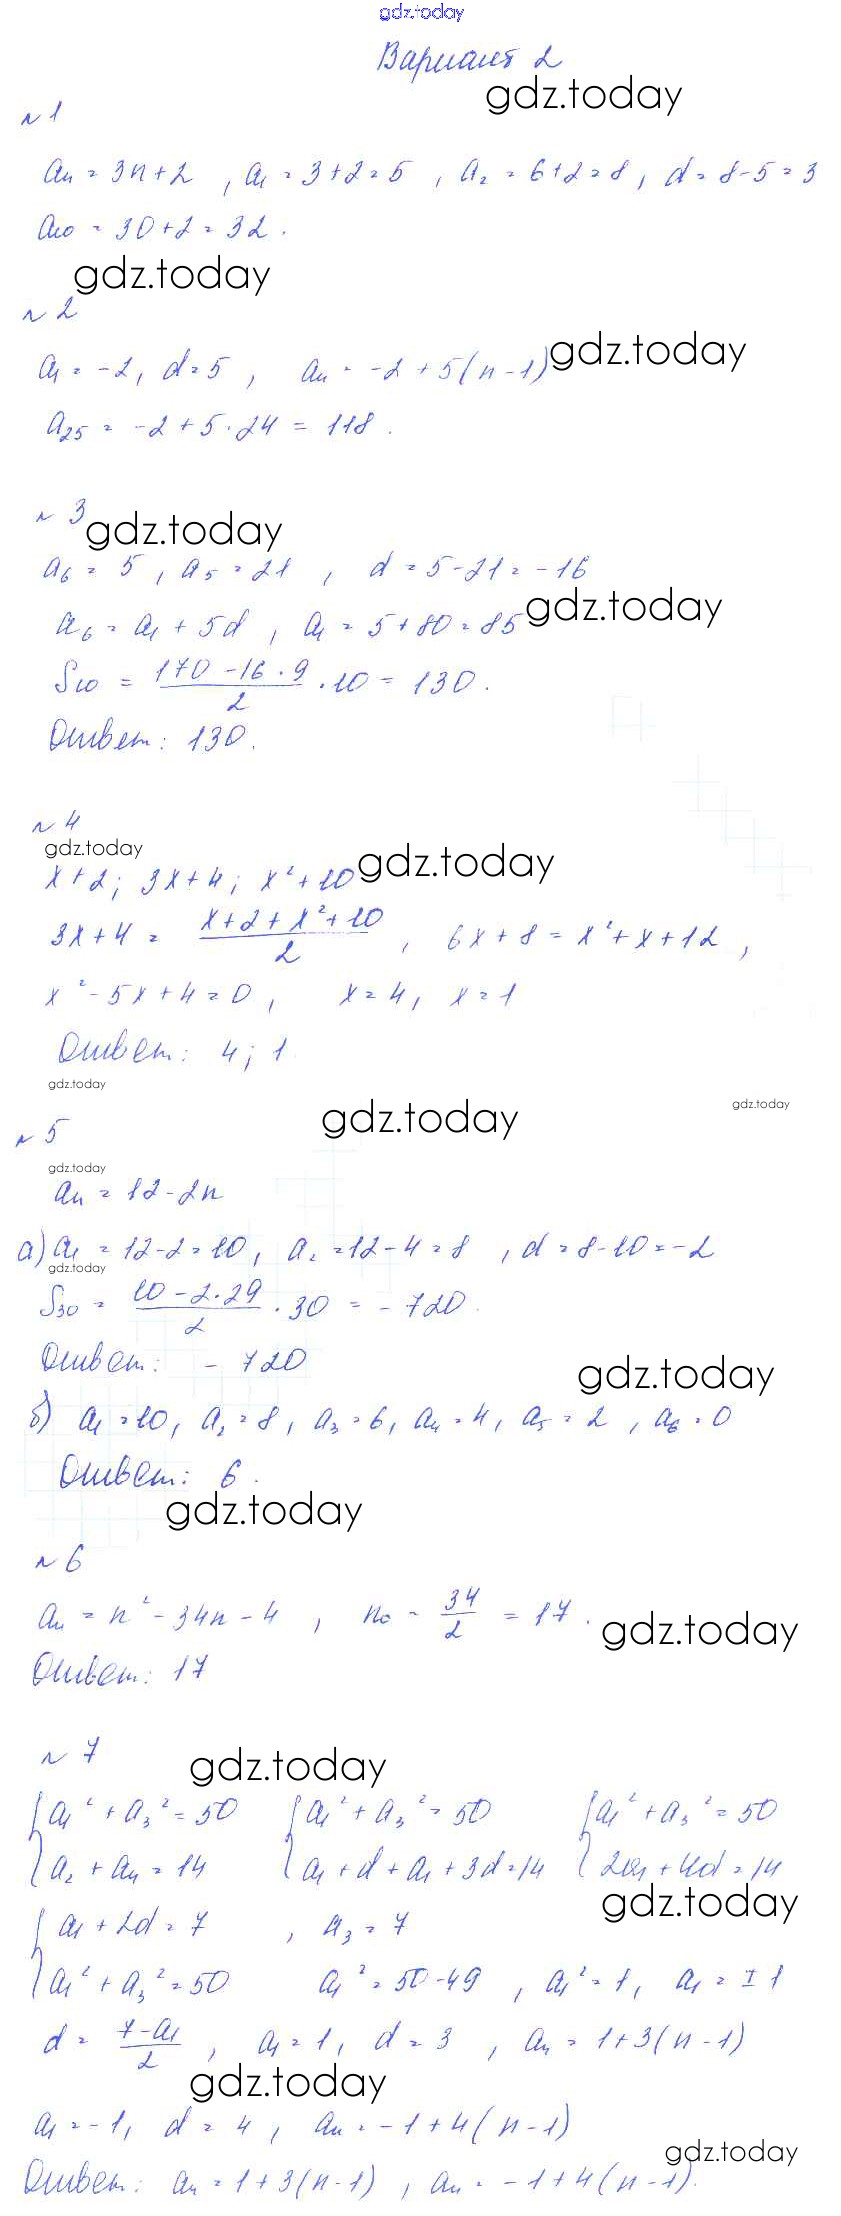 gdz.today
Вариант 2
gdz.today
№1
aₙ = 3n+2 , a₁ = 3+2=5 , a₂ = 6+2=8 , d = 8-5=3
a₁₀ = 30+2 = 32 .
gdz.today
№2
a₁ = -2, d=5 , aₙ = -2+5(n-1) gdz.today
a₂₅ = -2+5·24 = 118 .
№3
gdz.today
a₆ = 5 , a₅ = 21 , d = 5-21 = -16
a₆ = a₁ + 5d , a₁ = 5+80=85 gdz.today
S₁₀ = (170-16·9)/2 · 10 = 130 .
Ответ: 130.
№4
gdz.today gdz.today
x+2; 3x+4; x²+10
3x+4 = (x+2+x²+10)/2 , 6x+8 = x²+x+12 ,
x²-5x+4=0 , x=4, x=1
Ответ: 4; 1
gdz.today
gdz.today gdz.today
№5
gdz.today
aₙ = 12-2n
а) a₁ = 12-2=10, a₂ =12-4=8 , d = 8-10=-2
gdz.today
S₃₀ = (10-2·29)/2 · 30 = -720.
Ответ: -720
gdz.today
б) a₁ =10, a₂ =8, a₃ = 6, a₄ = 4, a₅ = 2 , a₆ = 0
Ответ: 6.
gdz.today
№6
aₙ = n²-34n-4 , n₀ - 34/2 = 17 . gdz.today
Ответ: 17
№7
gdz.today
{a₁²+a₃²=50 {a₁²+a₃²=50 {a₁²+a₃²=50
{a₂+a₄=14 {a₁+d+a₁+3d=14 {2a₁+4d=14
gdz.today
{a₁+2d=7 , a₃=7
{a₁²+a₃²=50 a₁²=50-49 , a₁²=1, a₁=±1
d = (7-a₁)/2 , a₁=1, d=3 , aₙ = 1+3(n-1)
gdz.today
a₁=-1, d=4, aₙ = -1+4(n-1)
gdz.today
Ответ: aₙ = 1+3(n-1) , aₙ = -1+4(n-1).